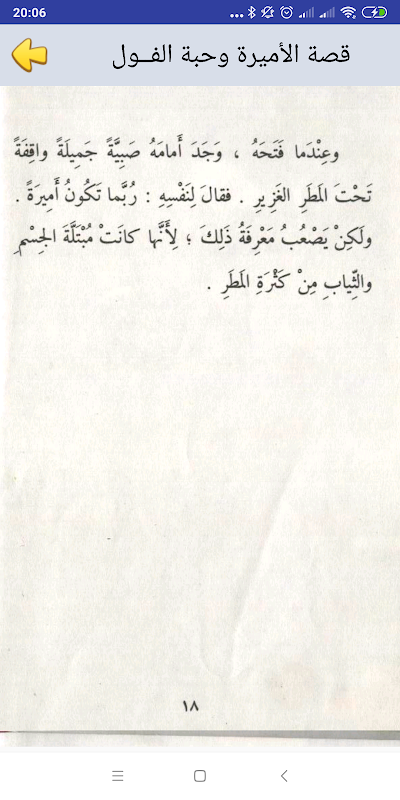 20:06
قصة الأميرة وحبة الفــول
وعِنْدَما فَتَحَهُ ، وَجَدَ أَمامَهُ صَبِيَّةً جَمِيلَةً واقِفَةً
تَحْتَ المَطَرِ الغَزِيرِ . فقالَ لِنَفْسِهِ : رُبَّما تَكُونُ أَمِيرَةً .
ولَكِنْ يَصْعُبُ مَعْرِفَةُ ذَلِكَ ؛ لِأَنَّها كانَتْ مُبْتَلَّةَ الجِسْمِ
والثِّيابِ مِنْ كَثْرَةِ المَطَرِ .
١٨